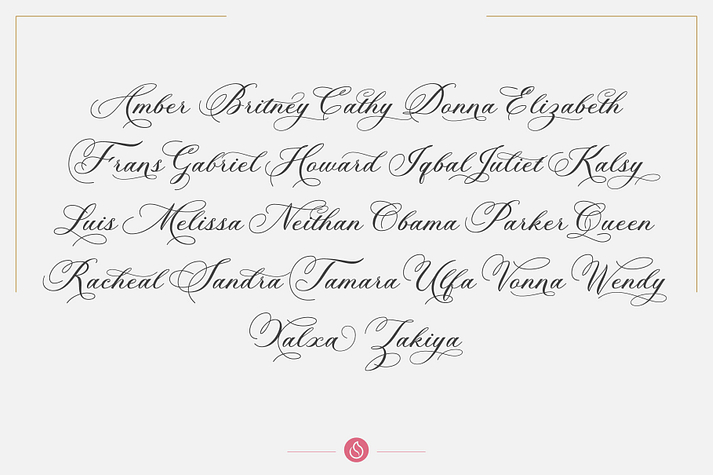 Amber Britney Cathy Donna Elizabeth
Frans Gabriel Howard Iqbal Juliet Kalsy
Luis Melissa Neithan Obama Parker Queen
Racheal Sandra Tamara Ulfa Vonna Wendy
Xalxa Zakiya